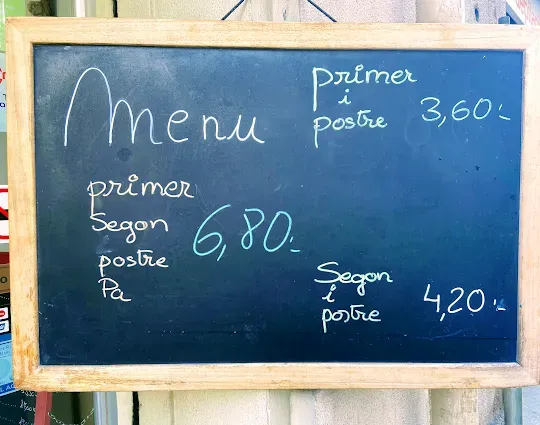 Menu
primer
Segon
postre
Pa
6,80.-
primer
i
postre
3,60.-
Segon
i
postre
4,20.-